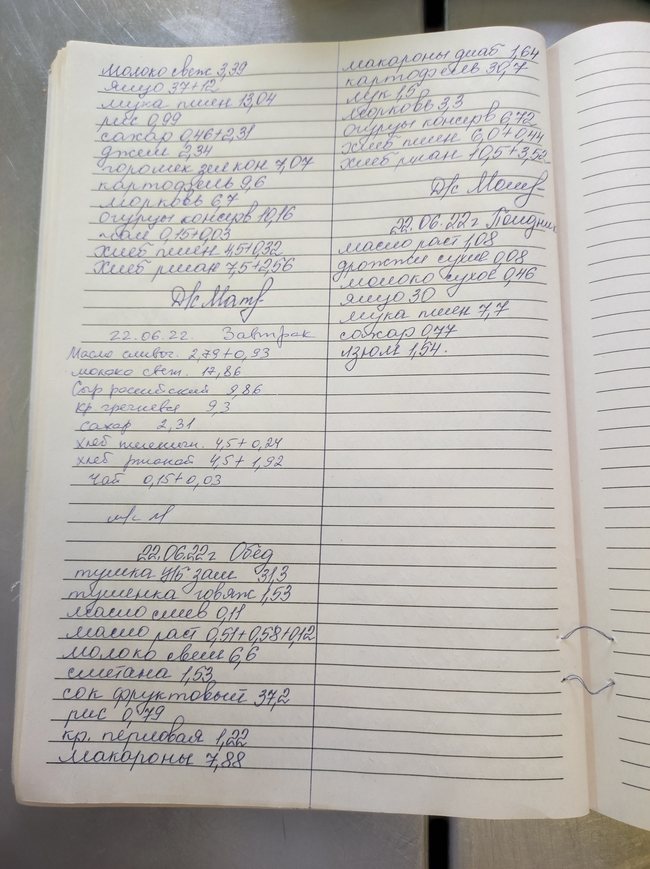 молоко свеж 3,39
яйцо 37+12
мука пшен 13,04
рис 0,99
сахар 0,46+2,31
джем 2,34
горошек зел кон 7,07
картофель 9,6
морковь 6,7
огурцы консерв 10,16
чай 0,15+0,03
хлеб пшен 4,5+0,32
хлеб ржан 7,5+2,56
22.06.22. Завтрак
Масло сливоч. 2,79+0,93
молоко свеж. 17,86
Сыр российский 9,86
кр гречневая 9,3
сахар 2,31
хлеб пшеничн. 4,5+0,24
хлеб ржаной 4,5+1,92
Чай 0,15+0,03
22.06.22г Обед
тушка ц/б зам 31,3
тушенка говяж 1,53
масло слив 0,11
масло раст 0,51+0,58+0,12
молоко свеж 6,6
сметана 1,53
сок фруктовый 37,2
рис 0,79
кр. перловая 1,22
макароны 7,88
макароны диаб 1,64
картофель 30,7
лук 1,5
морковь 3,3
огурцы консерв 0,72
хлеб пшен 6,0+0,44
хлеб ржан 10,5+3,52
22.06.22г Полдник
масло раст 1,08
дрожжи сухие 0,08
молоко сухое 0,46
яйцо 30
мука пшен 7,7
сахар 0,77
изюм 1,54.